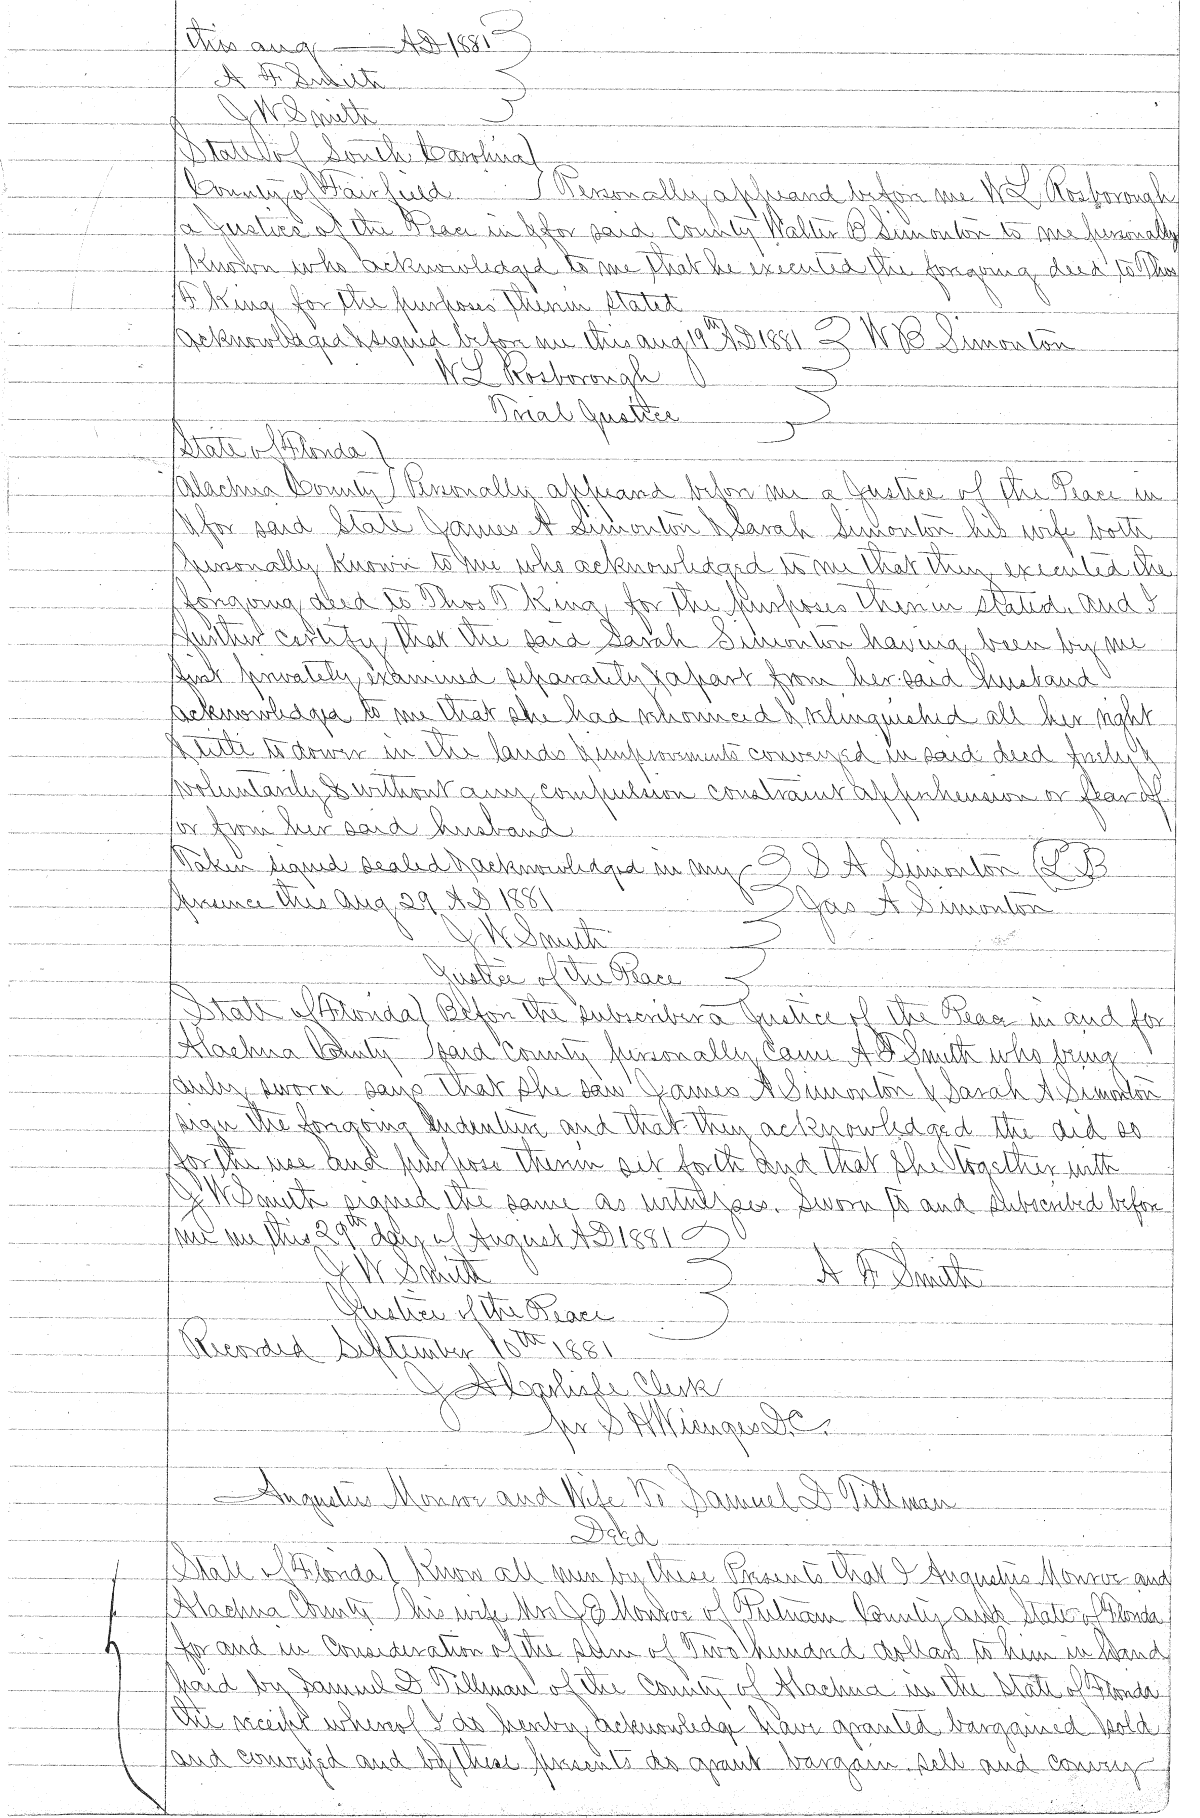 this aug — AD 1881
A F Smith
J W Smith
State of South Carolina
County of Fairfield Personally appeard before me W L Rosborough
a Justice of the Peace in & for said County Walter B Simonton to me personally
Known who acknowledged to me that he executed the forgoing deed to Thos
F King for the purposes therein stated
Acknowledged & signed before me this aug 19th AD 1881 W B Simonton
W L Rosborough
Trial Justice
State of Florida
Alachua County Personally appeard before me a Justice of the Peace in
& for said State James A Simonton & Sarah Simonton his wife both
personally Known to me who acknowledged to me that they executed the
forgoing deed to Thos T King for the purposes therein stated. and I
further certify that the said Sarah Simonton having been by me
first privately examined separately & apart from her said husband
acknowledged to me that she had renounced & relinquished all her right
& title to dower in the lands & improvements conveyed in said deed freely &
voluntarily & without any compulsion constraint apprehension or fear of
or from her said husband
Taken signed sealed & acknowledged in my S A Simonton
presence this Aug 29 AD 1881 Jas A Simonton
J W Smith
Justice of the Peace
State of Florida Before the subscriber a Justice of the Peace in and for
Alachua County said county personally came A F Smith who being
duly sworn says that she saw James A Simonton & Sarah A Simonton
sign the forgoing Indenture and that they acknowledged the did so
for the use and purpose therein set forth and that she together with
J W Smith signed the same as witnesses. Sworn to and subscribed before
me me this 29th day of August AD 1881
J W Smith A F Smith
Justice of the Peace
Recorded September 10th 1881
J A Carlisle Clerk
pr S H Wienges D.C.
Augustus Monroe and Wife To Samuel D Tillman
Deed
State of Florida Know all men by these Presents that I Augustus Monroe and
Alachua County his wife Mrs J E Monroe of Putnam County and State of Florida
for and in Consideration of the sum of Two hundred dollars to him in Hand
paid by Samuel D Tillman of the County of Alachua in the State of Florida
the receipt whereof I do hereby acknowledge have granted bargained sold
and conveyed and by these presents do grant bargain sell and convey